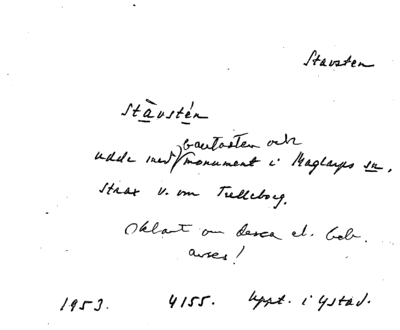 Stavsten
Stàvstén
bautasten och
udde med monument i Maglarps sn.
strax v. om Trelleborg.
Oklart om dessa el. beb.
avses!
1953. 4155. Uppt. i Ystad.